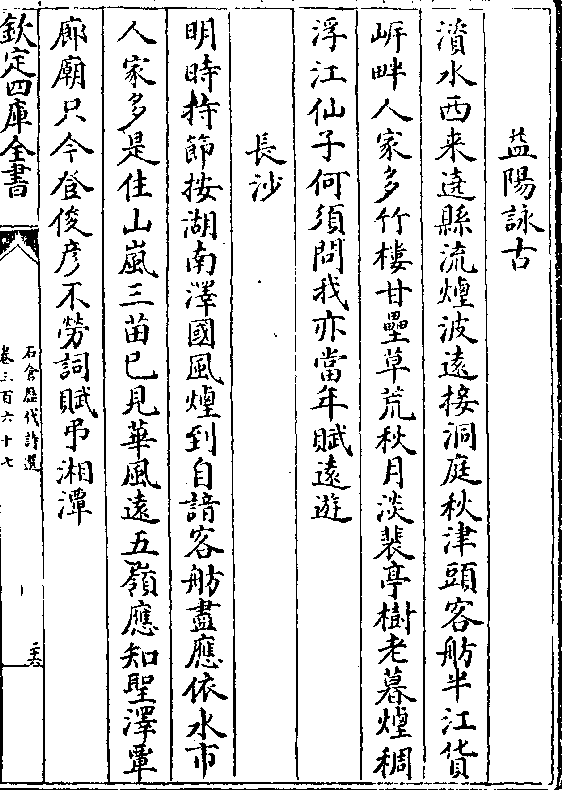 益陽詠古
濆水西来遶縣流煙波遠接洞庭秋津頭客舫半江貨
岍畔人家多竹樓甘壘草荒秋月淡裴亭樹老暮煙稠
浮江仙子何須問我亦當年賦遠遊
長沙
明時持節按湖南澤國風煙到自諳客舫盡應依水市
人家多是住山嵐三苗已見華風遠五嶺應知聖澤覃
廊廟只今登俊彦不勞詞賦弔湘潭
欽定四庫全書
石倉歷代詩選
卷三百六十七